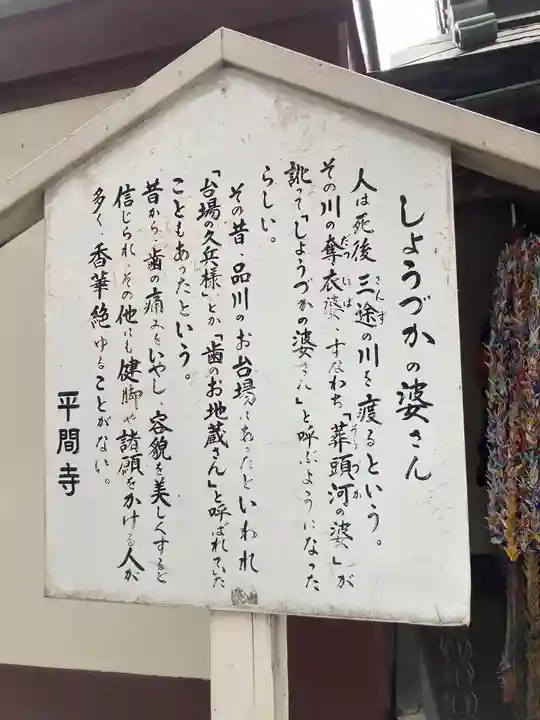 しょうづかの婆さん
人は死後、三途の川を渡るという。
さんず
その川の奪衣婆、すなわち「葬頭河の婆」が
だついば
そうづか
訛って「しょうづかの婆さん」と呼ぶようになった
らしい。
その昔、品川のお台場にあったといわれ
「台場の久兵様」とか「歯のお地蔵さん」と呼ばれていた
こともあったという。
昔から、歯の痛みをいやし、容貌を美しくすると
信じられ、その他にも健脚や諸願をかける人が
多く、香華絶ゆることがない。
平間寺